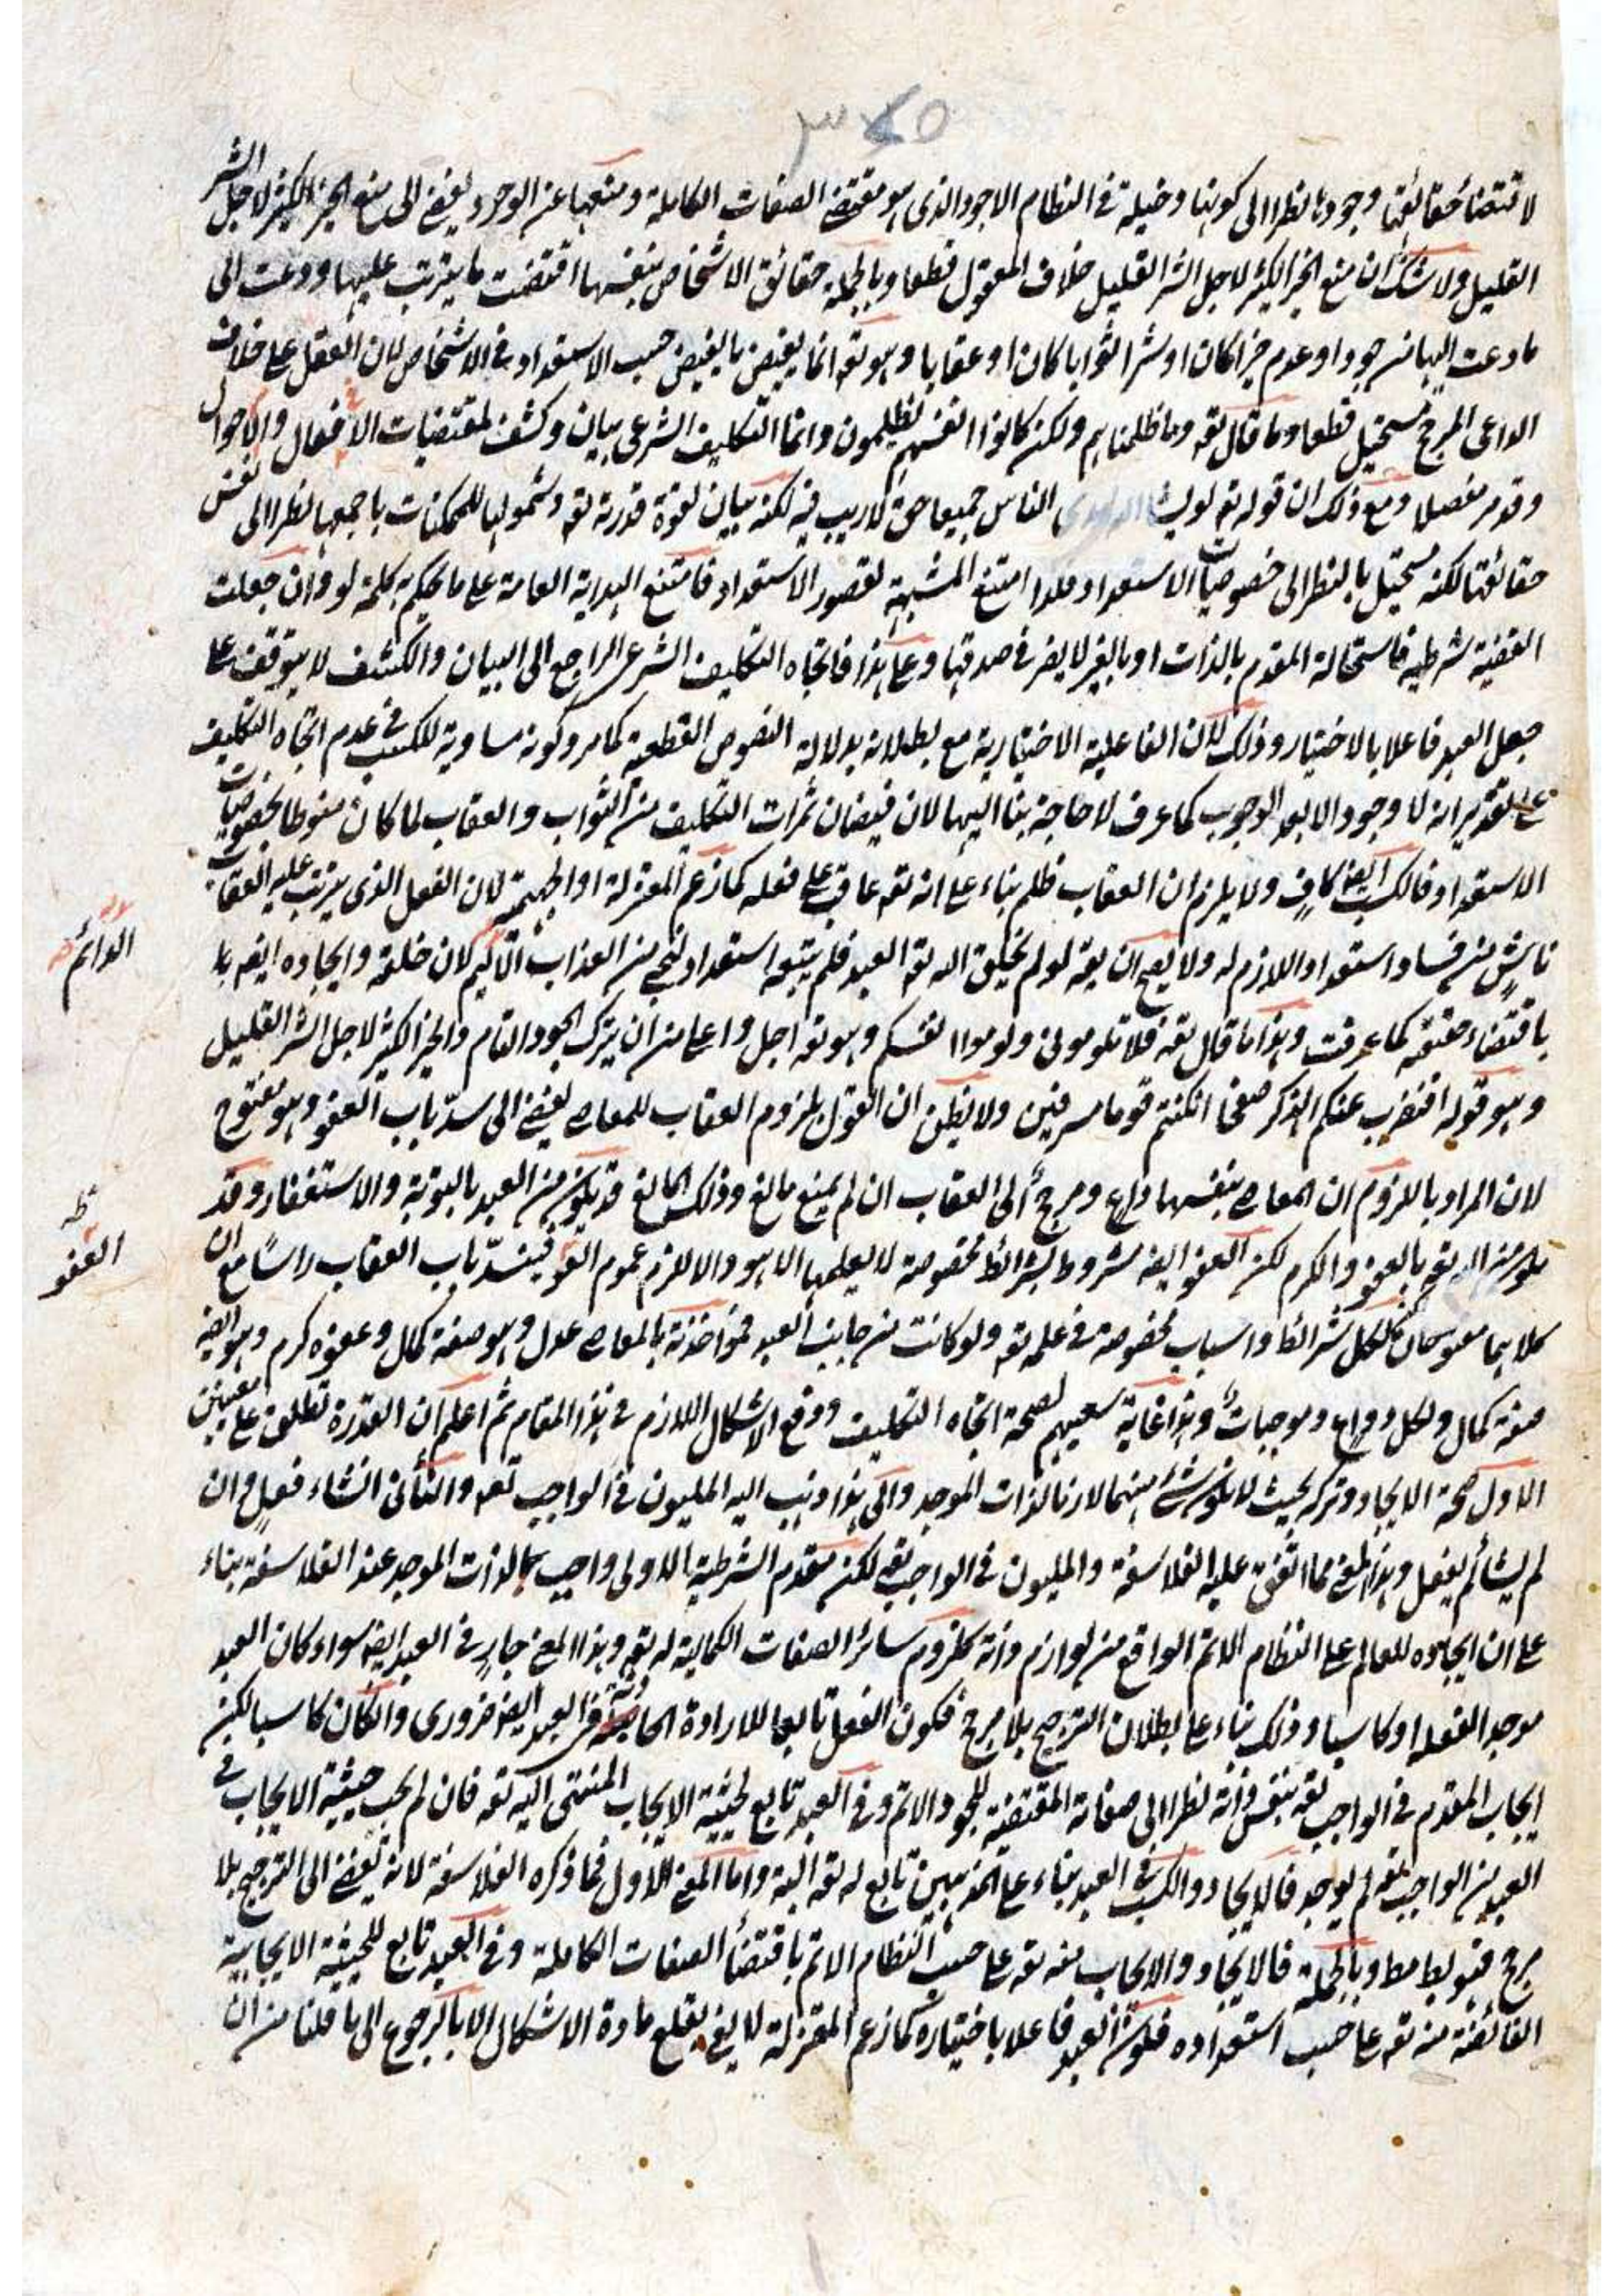 ٣٤٥
لاقتضاء حقائقها وجودها نظرا الى كونها دخيلة فى النظام الاجود الذى هو مقتضى الصفات الكاملة ومنعها عن الوجود يفضى الى منع الخير الكثير لاجل الشر
القليل ولا شك ان منع الخير الكثير لاجل الشر القليل خلاف المعقول قطعا وبالجملة حقائق الاشخاص بنفسها اقتضت ما يترتب عليها ودعت الى
ما دعت اليها من وجود او عدم خيرا كان او شرا ثوابا كان او عقابا وهو تعه انما يفيض ما يفيض حسب الاستعداد فى الاشخاص لان الفعل على خلاف
الداعى المرجح مستحيل قطعا وما قال تعه وما ظلمناهم ولكن كانوا انفسهم يظلمون وانما التكليف الشرعى بيان وكشف لمقتضيات الافعال والاحوال
وقد مر مفصلا ومع ذلك ان قوله تعه لو يشا الناس جميعا حق لا ريب فيه لكنه بيان لقوة قدرته تعه وشمولها للممكنات باجمعها نظرا الى نفس
حقائقها لكنه مستحيل بالنظر الى خصوصيات الاستعداد ولذا امتنع المشية لقصور الاستعداد فامتنع الهداية العامة على ما يحكم به كلمة لو وان جعلت
القضية شرطية فاستحالة المقدم بالذات او بالغير لا يضر فى صدقها وعلى هذا فاتجاه التكليف الشرعى الراجع الى البيان والكشف لا يتوقف على
جعل العبد فاعلا بالاختيار وذلك لان الفاعلية الاختيارية مع بطلانه بدلالة النصوص القطعية كما مر وكونه مساوية للكسب فى عدم اتجاه التكليف
على تقدير انه لا وجود الا بعد الوجوب كما عرف لا حاجة بنا اليها لان فيضان ثمرات التكليف من الثواب والعقاب لما كان منوطا بخصوصيات
الاستعداد فالكسب ايضا كاف ولا يلزم ان العقاب ظلم بناء على انه تعه عاقب على فعله كما زعم المعتزلة او الجهمية لان الفعل الذى يترتب عليه العقاب
ناش من فساد استعداد اللازم له ولا يصح ان يقه لو لم يخلق الله تعه العبد فلم يتبعه استعداد لنجى من العذاب الاليم لان خلقه وايجاده ايضا
الدائم
باقتضاء حقيقته كما عرفت وهذا ما قال تعه فلا تلومونى ولوموا انفسكم وهو تعه اجل واعلى من ان يترك الجود التام والخير الكثير لاجل الشر القليل
وهو قوله افنضرب عنكم الذكر صفحا ان كنتم قوما مسرفين ولا يظن ان القول بلزوم العقاب للمعاصى يفضى الى سد باب العفو وهو مفتوح
لان المراد باللزوم ان المعاصى بنفسها داع ومرجح الى العقاب ان لم يمنع مانع وذلك المانع قد يكون من العبد بالتوبة والاستغفار وقد
يكون من الله تعه بالعفو والكرم لكن العفو ايضه مشروط بشرائط مخصوصة لا يعلمها الا هو والا لزم عموم العفو فينسد باب العقاب راسا مع ان
ظه
العفو
كلاهما مفتوحان لكن لكل شرائط واسباب مخصوصة فى علمه تعه ولو كانت من جانب العبد فمواخذته بالمعاصى عدل وهو صفة كمال وعفوه كرم وهو ايضه
صفة كمال ولكل دواع وموجبات وهذا غاية سعيهم لصحة اتجاه التكليف ودفع الاشكال اللازم فى هذا المقام ثم اعلم ان القدرة تطلق على معنيين
الاول صحة الايجاد وتركه بحيث لا يكون شئ منهما لازما لذات الموجد والى هذا ذهب اليه المليون فى الواجب تعه والثانى ان شاء فعل وان
لم يشأ لم يفعل وهذا المعنى مما اتفق عليه الفلاسفة والمليون فى الواجب تعه لكن مقدم الشرطية الاولى واجب بالذات الموجد عند الفلاسفة بناء
على ان ايجاده للعالم على النظام الاتم الواقع من لوازم ذاته كلزوم سائر الصفات الكمالية له تعه وهذا المعنى جار فى العبد ايضه سواء كان العبد
موجد الفعله او كاسبا وذلك بناء على بطلان الترجيح بلا مرجح فكون الفعل تابعا للارادة الحادثة فى العبد ايضه ضرورى وان كان كاسبا لكن
ايجاب المقدم فى الواجب تعه بنفس ذاته نظرا الى صفاته المقتضية للجود الاتم وفى العبد تابع لحيثية الايجاب المنتهى اليه تعه فان لم يجب حيثية الايجاب فى
العبد من الواجب تعه لم يوجد فالايجاد والكسب فى العبد بناء على المذهبين تابع له تعه البتة واما المعنى الاول فما ذكره الفلاسفة لانه يفضى الى الترجيح بلا
مرجح فهو بط مط وبالجملة فالايجاد والايجاب منه تعه على حسب النظام الاتم باقتضاء الصفات الكاملة وفى العبد تابع للحيثية الايجابية
الفائضة منه تعه على حسب استعداده فكون العبد فاعلا باختياره كما زعم المعتزلة لا يفى بقلع مادة الاشكال الا بالرجوع الى ما قلنا من ان